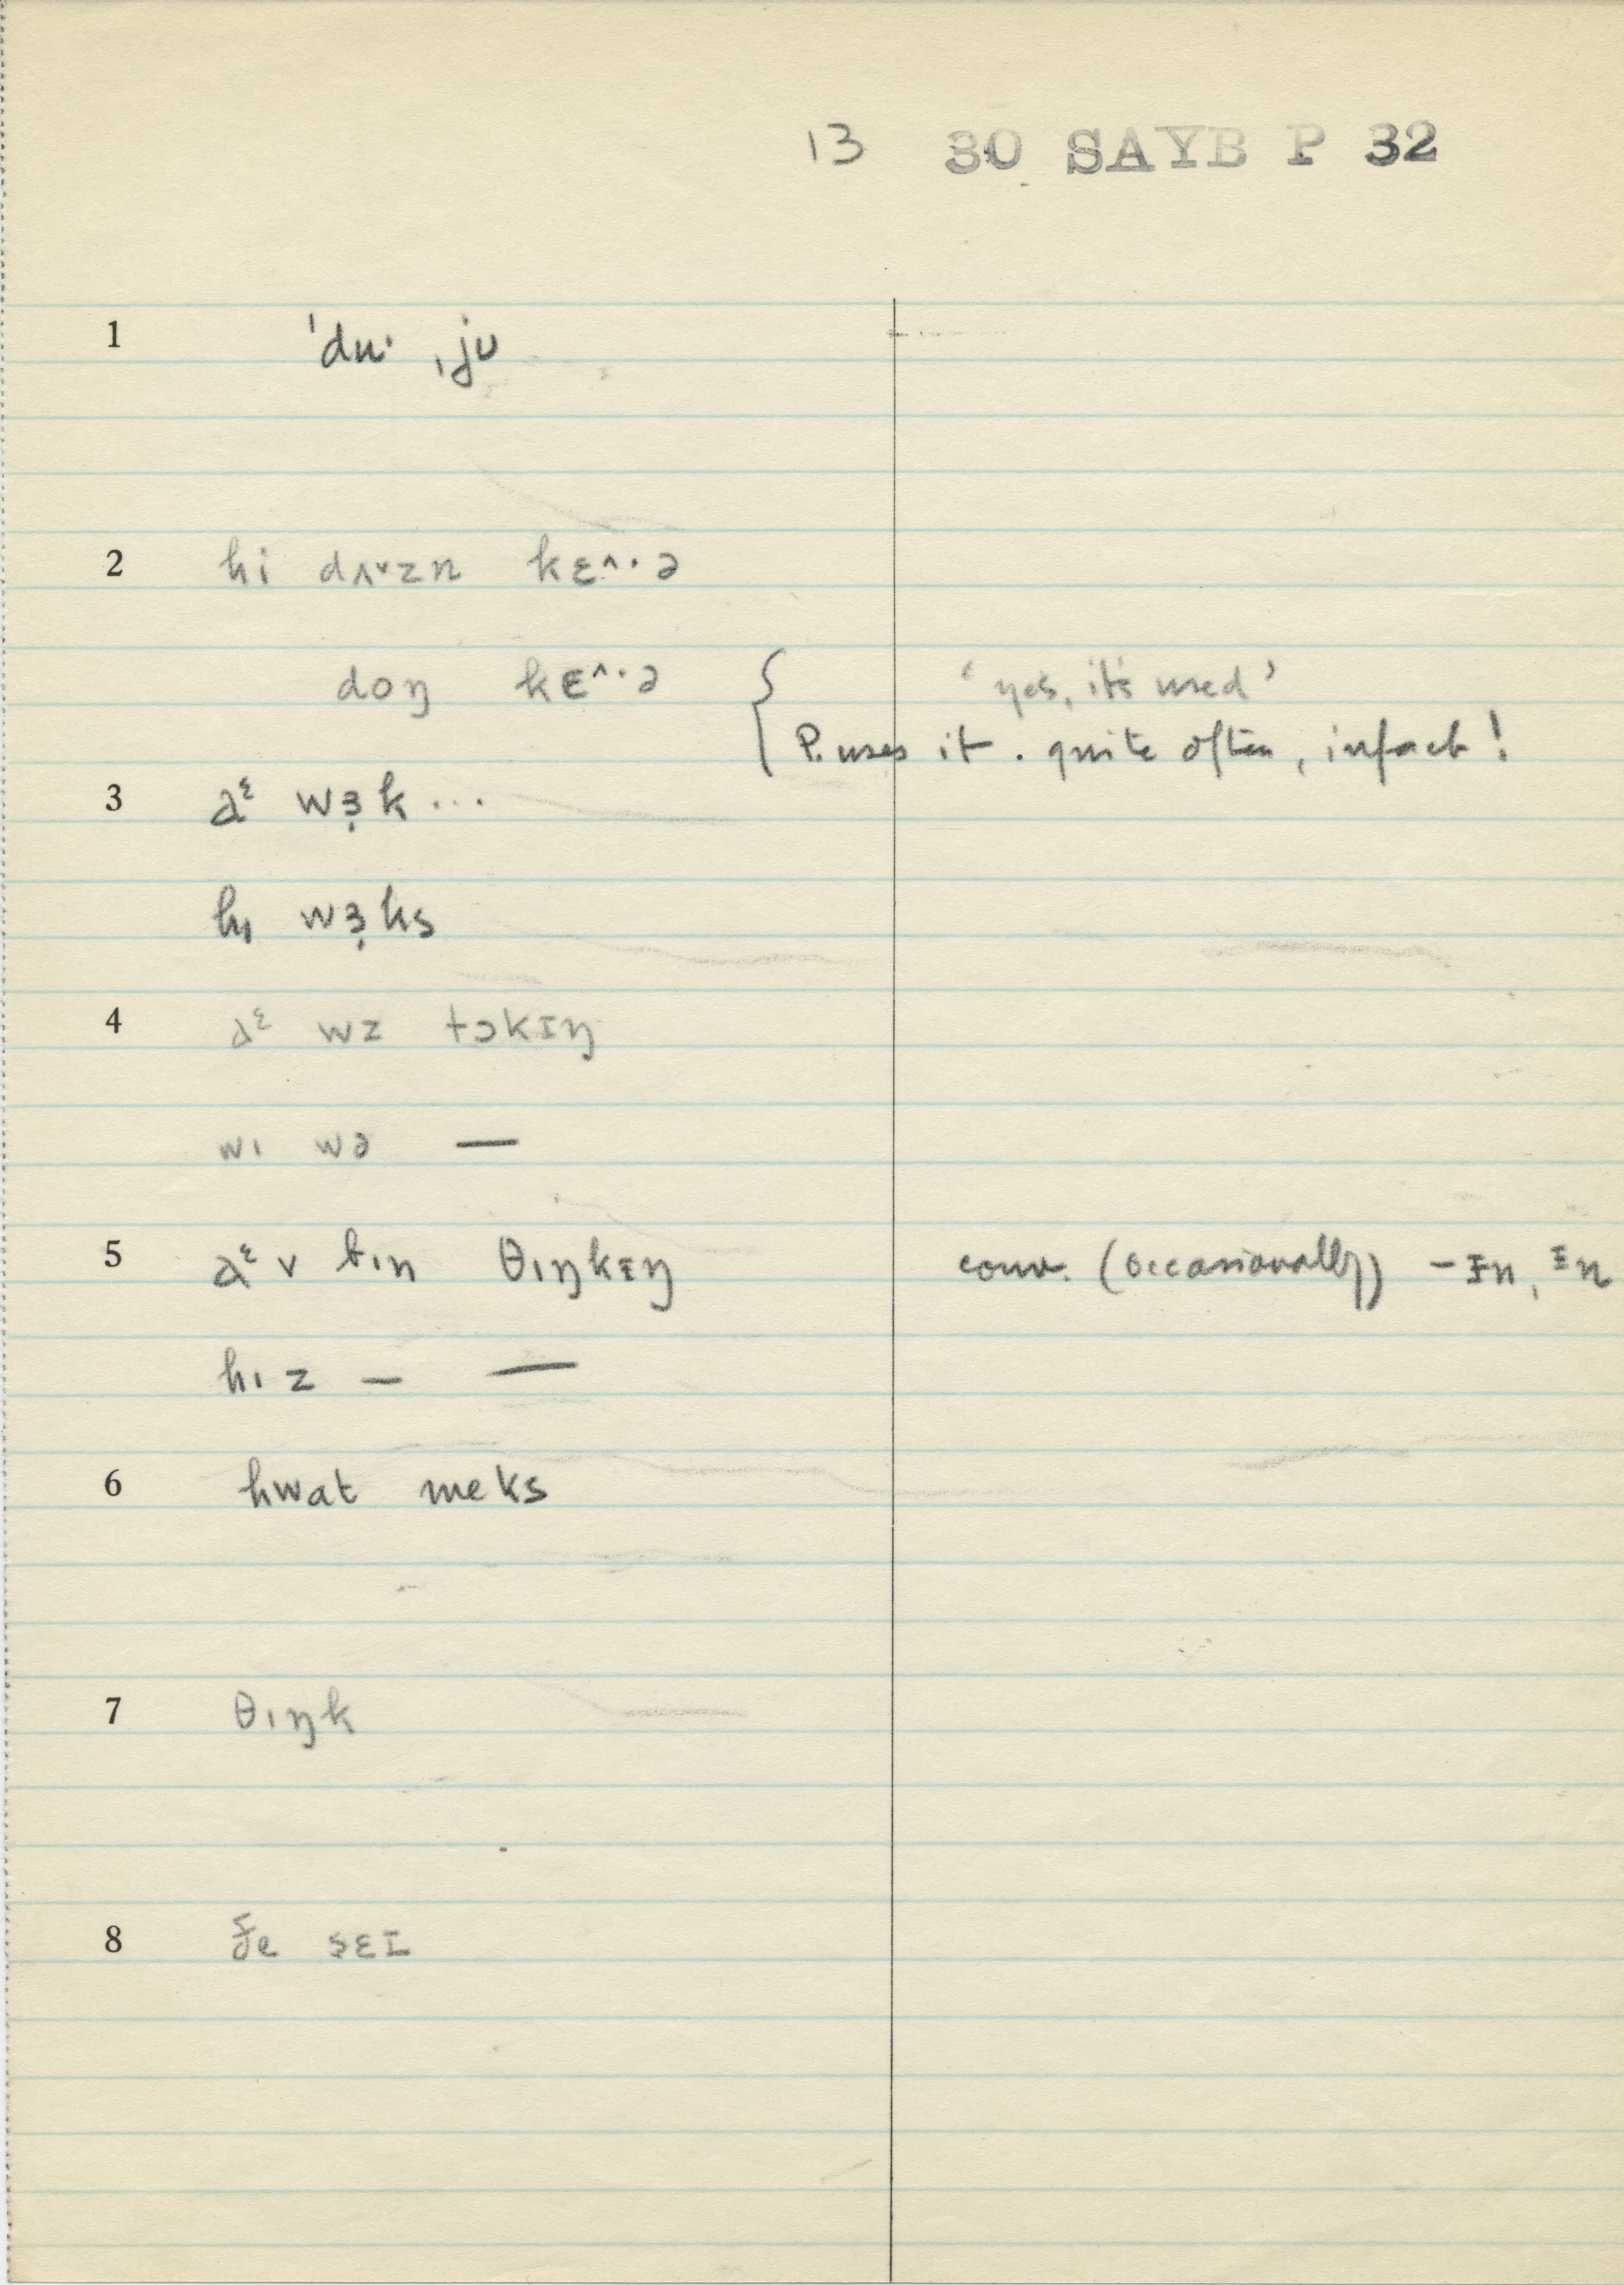 13 30 SAYB P 32
1 ˈdu· ˌju
2 hi dʌ˅zn kɛ^·ə
doŋ kɛ^·ə { ‘yes, it's used’
P. uses it. quite often, in fact!
3 aᵋ wɜ̣k ...
hɪ wɜ̣ks
4 aᵋ wz tɔkɪŋ
wɪ wə —
5 aᵋ v bɪn θɪŋkɪŋ conv. (occasionally) -ɪn, ɪn
hɪz — —
6 hwat meks
7 θɪŋk
8 ʒe sɛɪ